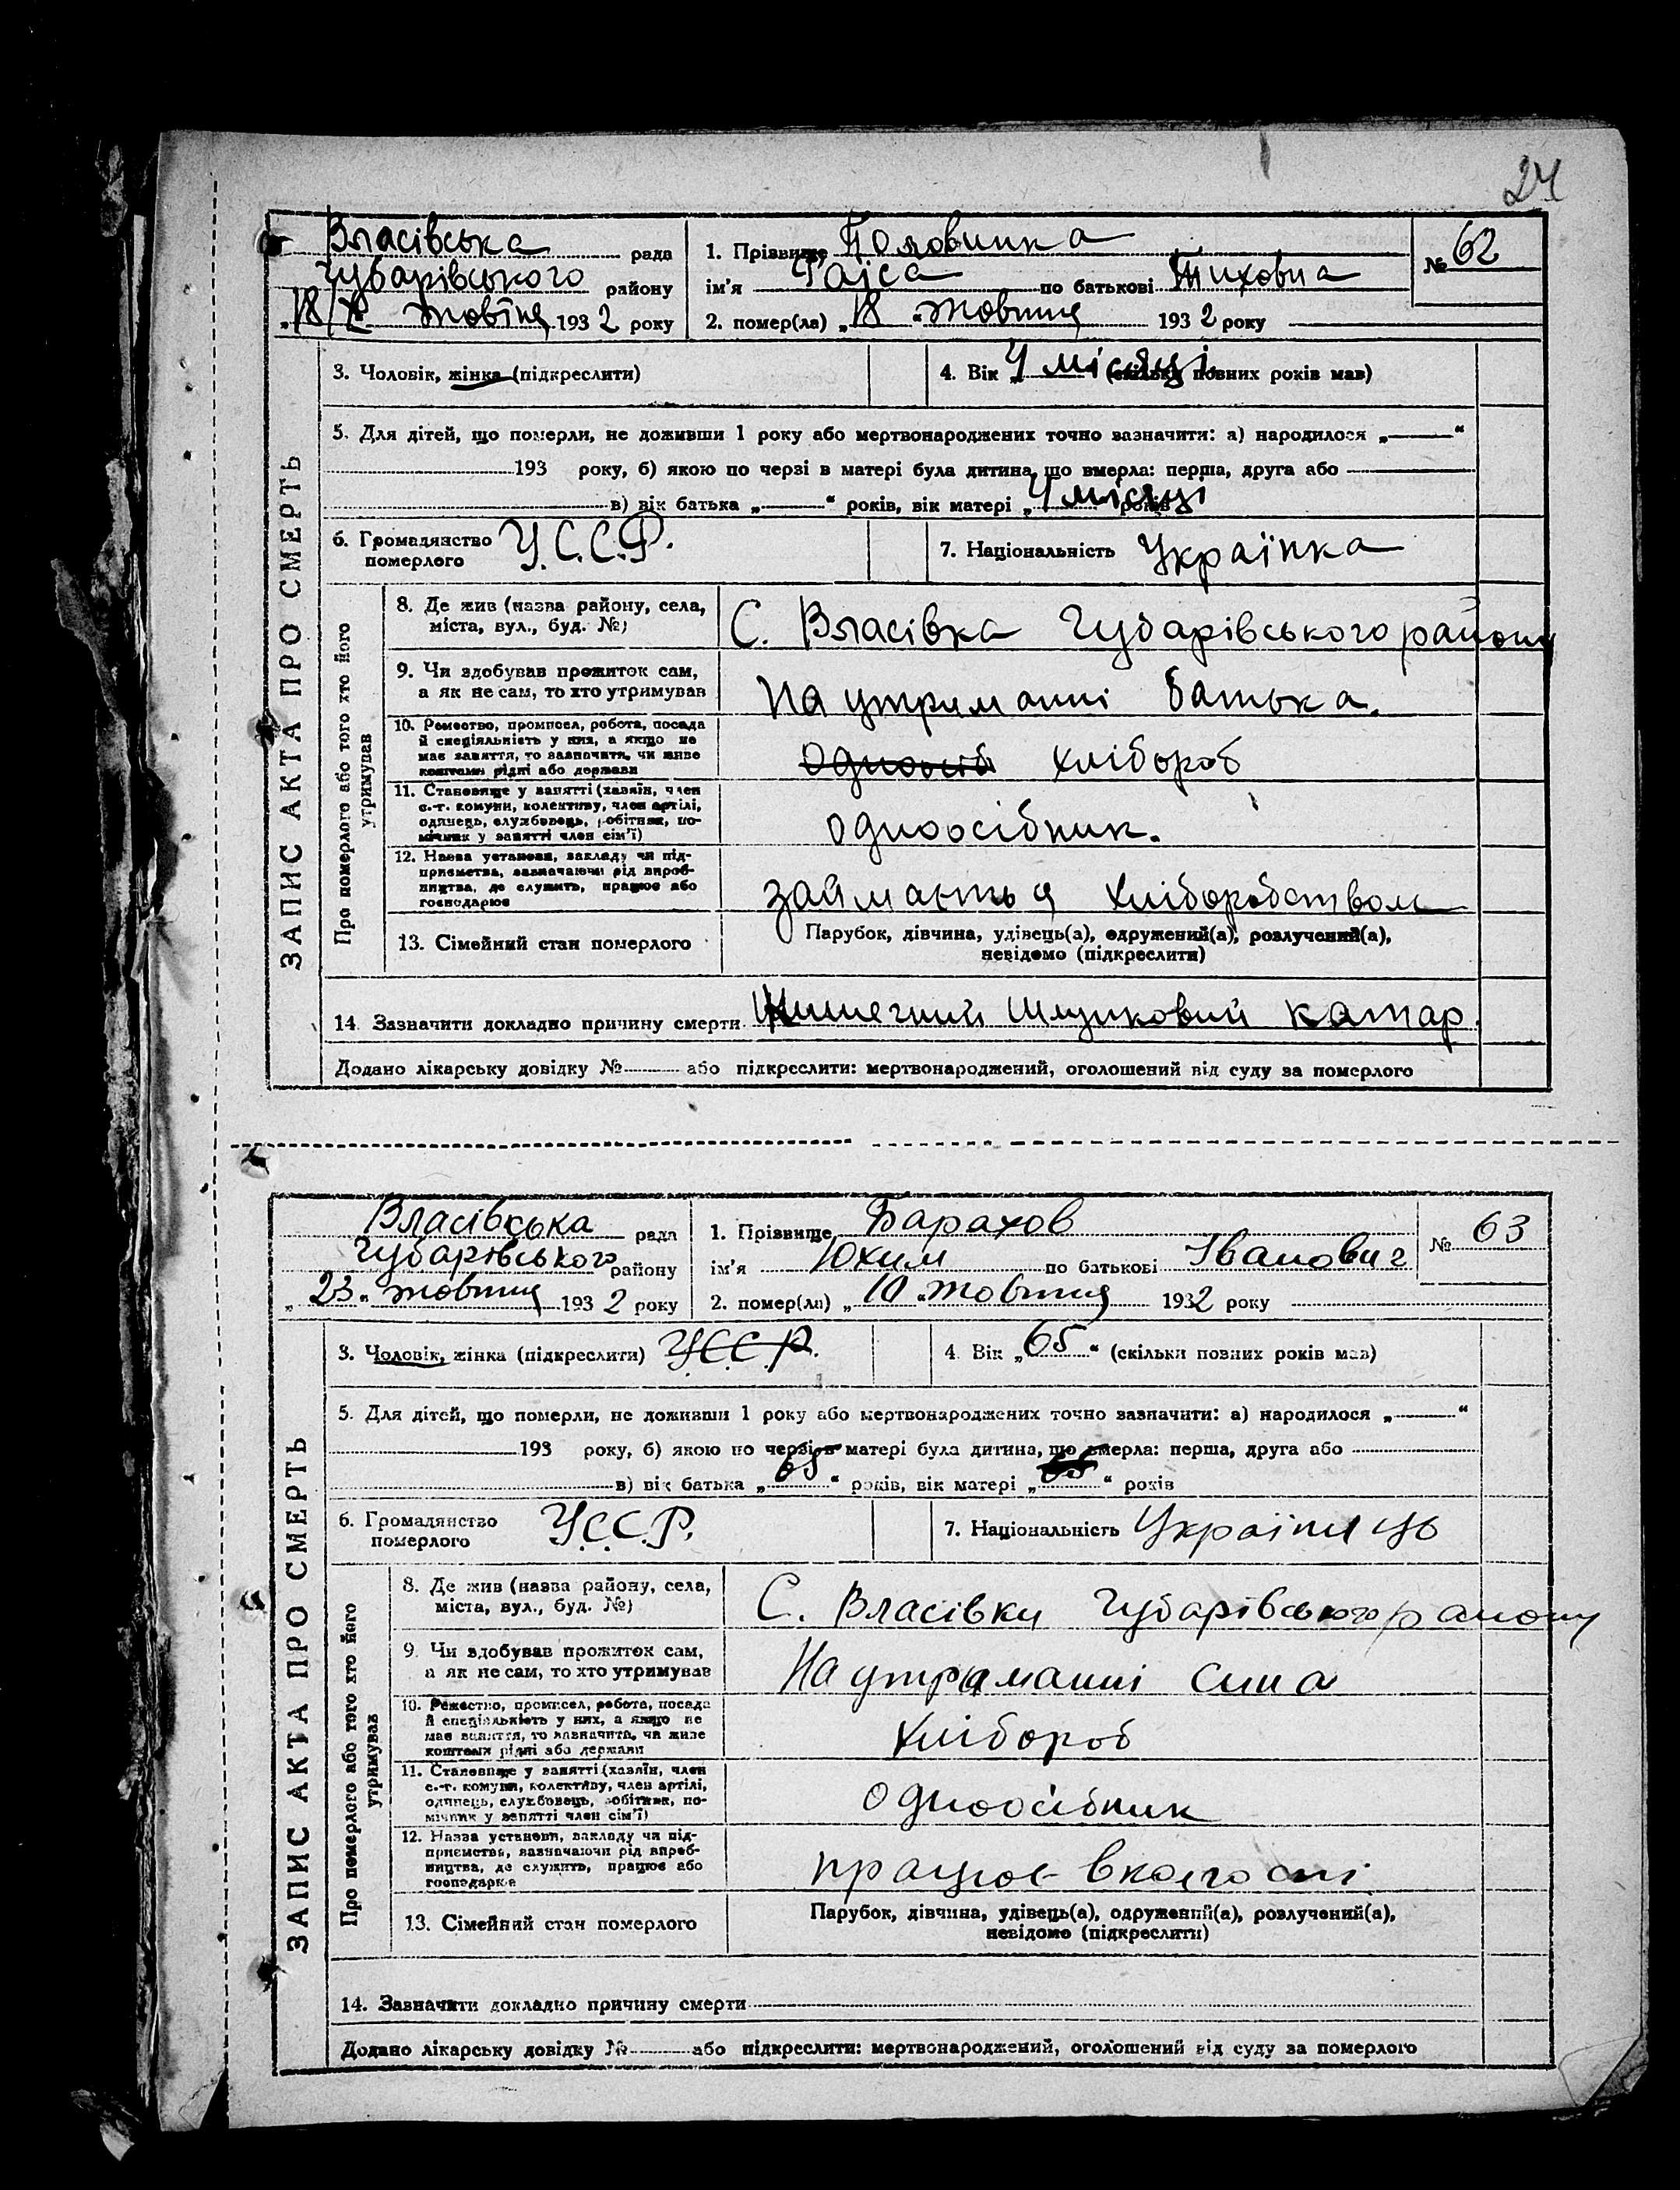 24
Власівська рада
Чубарівського району
„18/X“ жовтня 1932 року
1. Прізвище Половинка
ім'я Раїса по батькові Тиховна
2. помер(ла) „18“ жовтня 1932 року
№ 62
ЗАПИС АКТА ПРО СМЕРТЬ
3. Чоловік, жінка (підкреслити)
4. Вік „4 місяці (скільки повних років мав)
5. Для дітей, що померли, не доживши 1 року або мертвонароджених точно зазначити: а) народилося „ “
193 року, б) якою по черзі в матері була дитина, що вмерла: перша, друга або
в) вік батька „ “ років, вік матері „4 місяці років
6. Громадянство
померлого
У.С.С.Р.
7. Національність Українка
Про померлого або того хто його
утримував
8. Де жив (назва району, села,
міста, вул., буд. №)
С. Власівка Чубарівського району
9. Чи здобував прожиток сам,
а як не сам, то хто утримував
на утриманні батька.
10. Ремество, промисел, робота, посада
й спеціяльність у них, а якщо не
має заняття, то зазначити, чи живе
коштами рідні або держави
хлібороб
11. Становище у занятті (хазяїн, член
с.-г. комуни, колективу, член артілі,
одинець, службовець, робітник, по-
мічник у занятті член сім'ї)
одноосібник.
12. Назва установи, закладу чи під-
приємства, зазначаючи рід вироб-
ництва, де служить, працює або
господарює
займається хліборобством
13. Сімейний стан померлого
Парубок, дівчина, удівець(а), одружений(а), розлучений(а),
невідомо (підкреслити)
14. Зазначити докладно причину смерти Кишечний Шлунковий катар.
Додано лікарську довідку № або підкреслити: мертвонароджений, оголошений від суду за померлого
Власівська рада
Чубарівського району
„23“ жовтня 1932 року
1. Прізвище Барахов
ім'я Юхим по батькові Іванович
2. помер(ла) „10“ жовтня 1932 року
№ 63
ЗАПИС АКТА ПРО СМЕРТЬ
3. Чоловік, жінка (підкреслити) У.С.С.Р.
4. Вік „65“ (скільки повних років мав)
5. Для дітей, що померли, не доживши 1 року або мертвонароджених точно зазначити: а) народилося „ “
193 року, б) якою по черзі в матері була дитина, що вмерла: перша, друга або
в) вік батька „65“ років, вік матері „65“ років
6. Громадянство
померлого
У.С.С.Р.
7. Національність Українець
Про померлого або того хто його
утримував
8. Де жив (назва району, села,
міста, вул., буд. №)
С. Власівки Чубарівського району
9. Чи здобував прожиток сам,
а як не сам, то хто утримував
На утриманні сина
10. Ремество, промисел, робота, посада
й спеціяльність у них, а якщо не
має заняття, то зазначити, чи живе
коштами рідні або держави
хлібороб
11. Становище у занятті (хазяїн, член
с.-г. комуни, колективу, член артілі,
одинець, службовець, робітник, по-
мічник у занятті член сім'ї)
одноосібник
12. Назва установи, закладу чи під-
приємства, зазначаючи рід вироб-
ництва, де служить, працює або
господарює
працює в колгоспі
13. Сімейний стан померлого
Парубок, дівчина, удівець(а), одружений(а), розлучений(а),
невідомо (підкреслити)
14. Зазначити докладно причину смерти
Додано лікарську довідку № або підкреслити: мертвонароджений, оголошений від суду за померлого